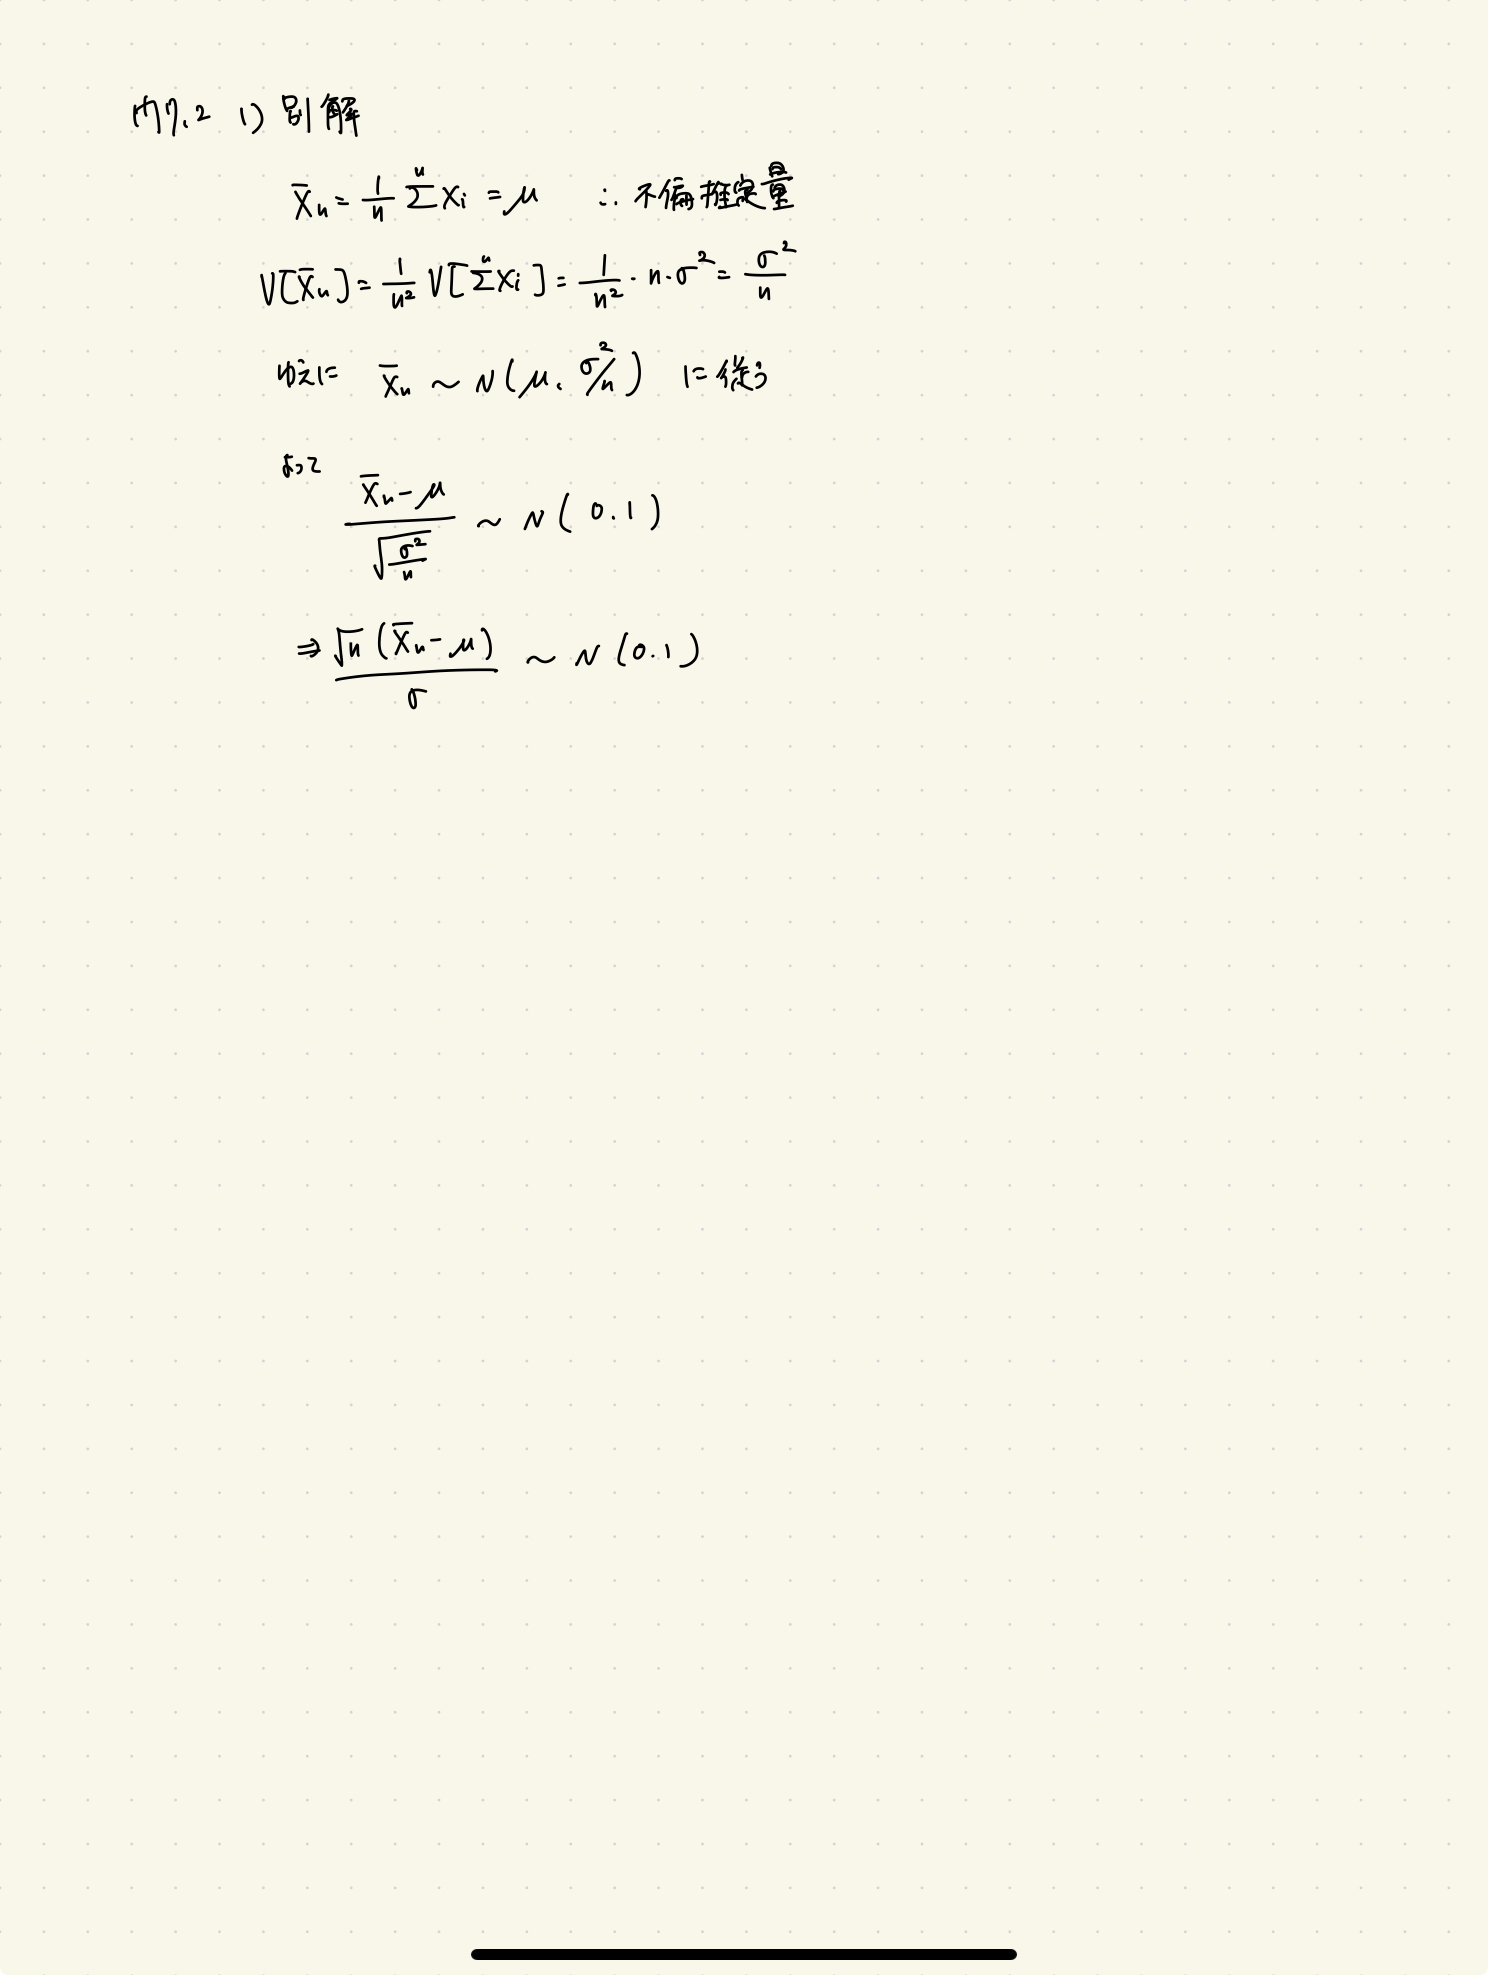 例7.2 1) 別解
X̄n = 1/n Σ^n Xi = μ ∴ 不偏推定量
V[X̄n] = 1/n² V[Σ^n Xi] = 1/n² · n · σ² = σ²/n
ゆえに X̄n ~ N(μ, σ²/n) に従う
よって (X̄n - μ)/√(σ²/n) ~ N(0.1)
⇒ √n (X̄n - μ)/σ ~ N(0.1)